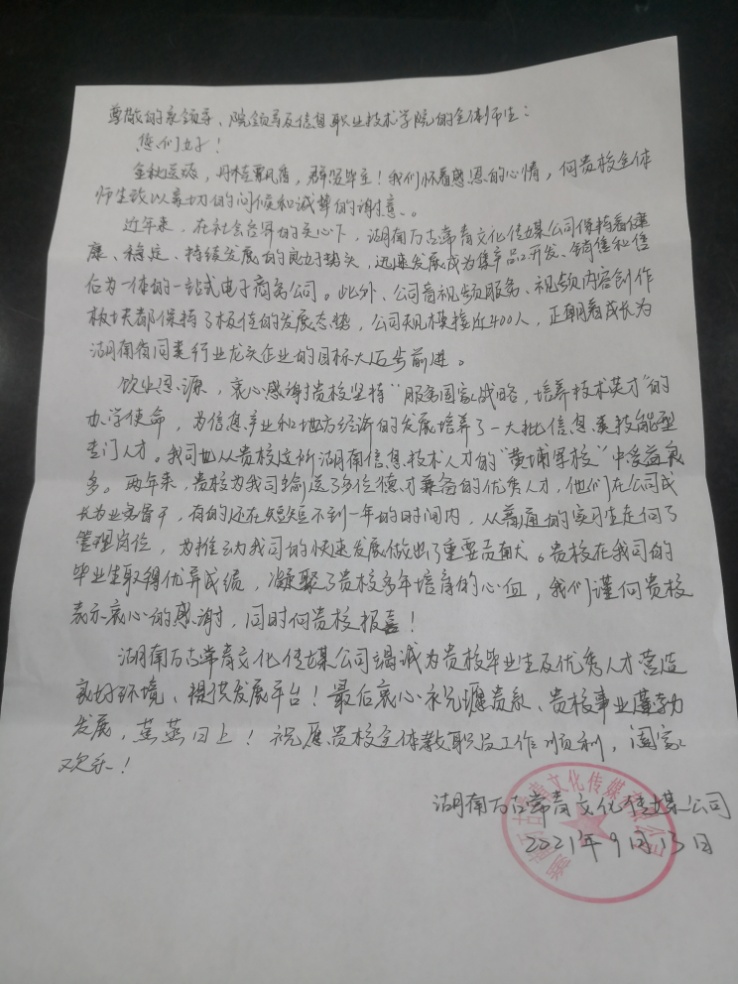 尊敬的系领导、院领导及信息职业技术学院的全体师生：
您们好！
金秋送爽，丹桂飘香，群贤毕至！我们怀着感恩的心情，向贵校全体
师生致以亲切的问候和诚挚的谢意。
近年来，在社会各界的关心下，湖南万古常青文化传媒公司保持着健
康、稳定、持续发展的良好势头，迅速发展成为集产品开发、销售和售
后为一体的一站式电子商务公司。此外、公司音视频服务、视频内容创作
板块都保持了极佳的发展态势，公司规模接近400人，正朝着成长为
湖南省同类行业龙头企业的目标大迈步前进。
饮水思源，衷心感谢贵校坚持“服务国家战略，培养技术英才”的
办学使命，为信息产业和地方经济的发展培养了一大批信息类技能型
专门人才。我司也从贵校这所湖南信息技术人才的“黄埔军校”中受益良
多。两年来，贵校为我司输送了多位德才兼备的优秀人才，他们在公司成
长为业务骨干，有的还在短短不到一年的时间内，从普通的实习生走向了
管理岗位，为推动我司的快速发展做出了重要贡献。贵校在我司的
毕业生取得优异成绩，凝聚了贵校多年培育的心血，我们谨向贵校
表示衷心的感谢，同时向贵校报喜！
湖南万古常青文化传媒公司竭诚为贵校毕业生及优秀人才营造
良好环境、提供发展平台！最后衷心祝愿贵系、贵校事业蓬勃
发展，蒸蒸日上！祝愿贵校全体教职员工作顺利，阖家
欢乐！
湖南万古常青文化传媒公司
2021年9月13日